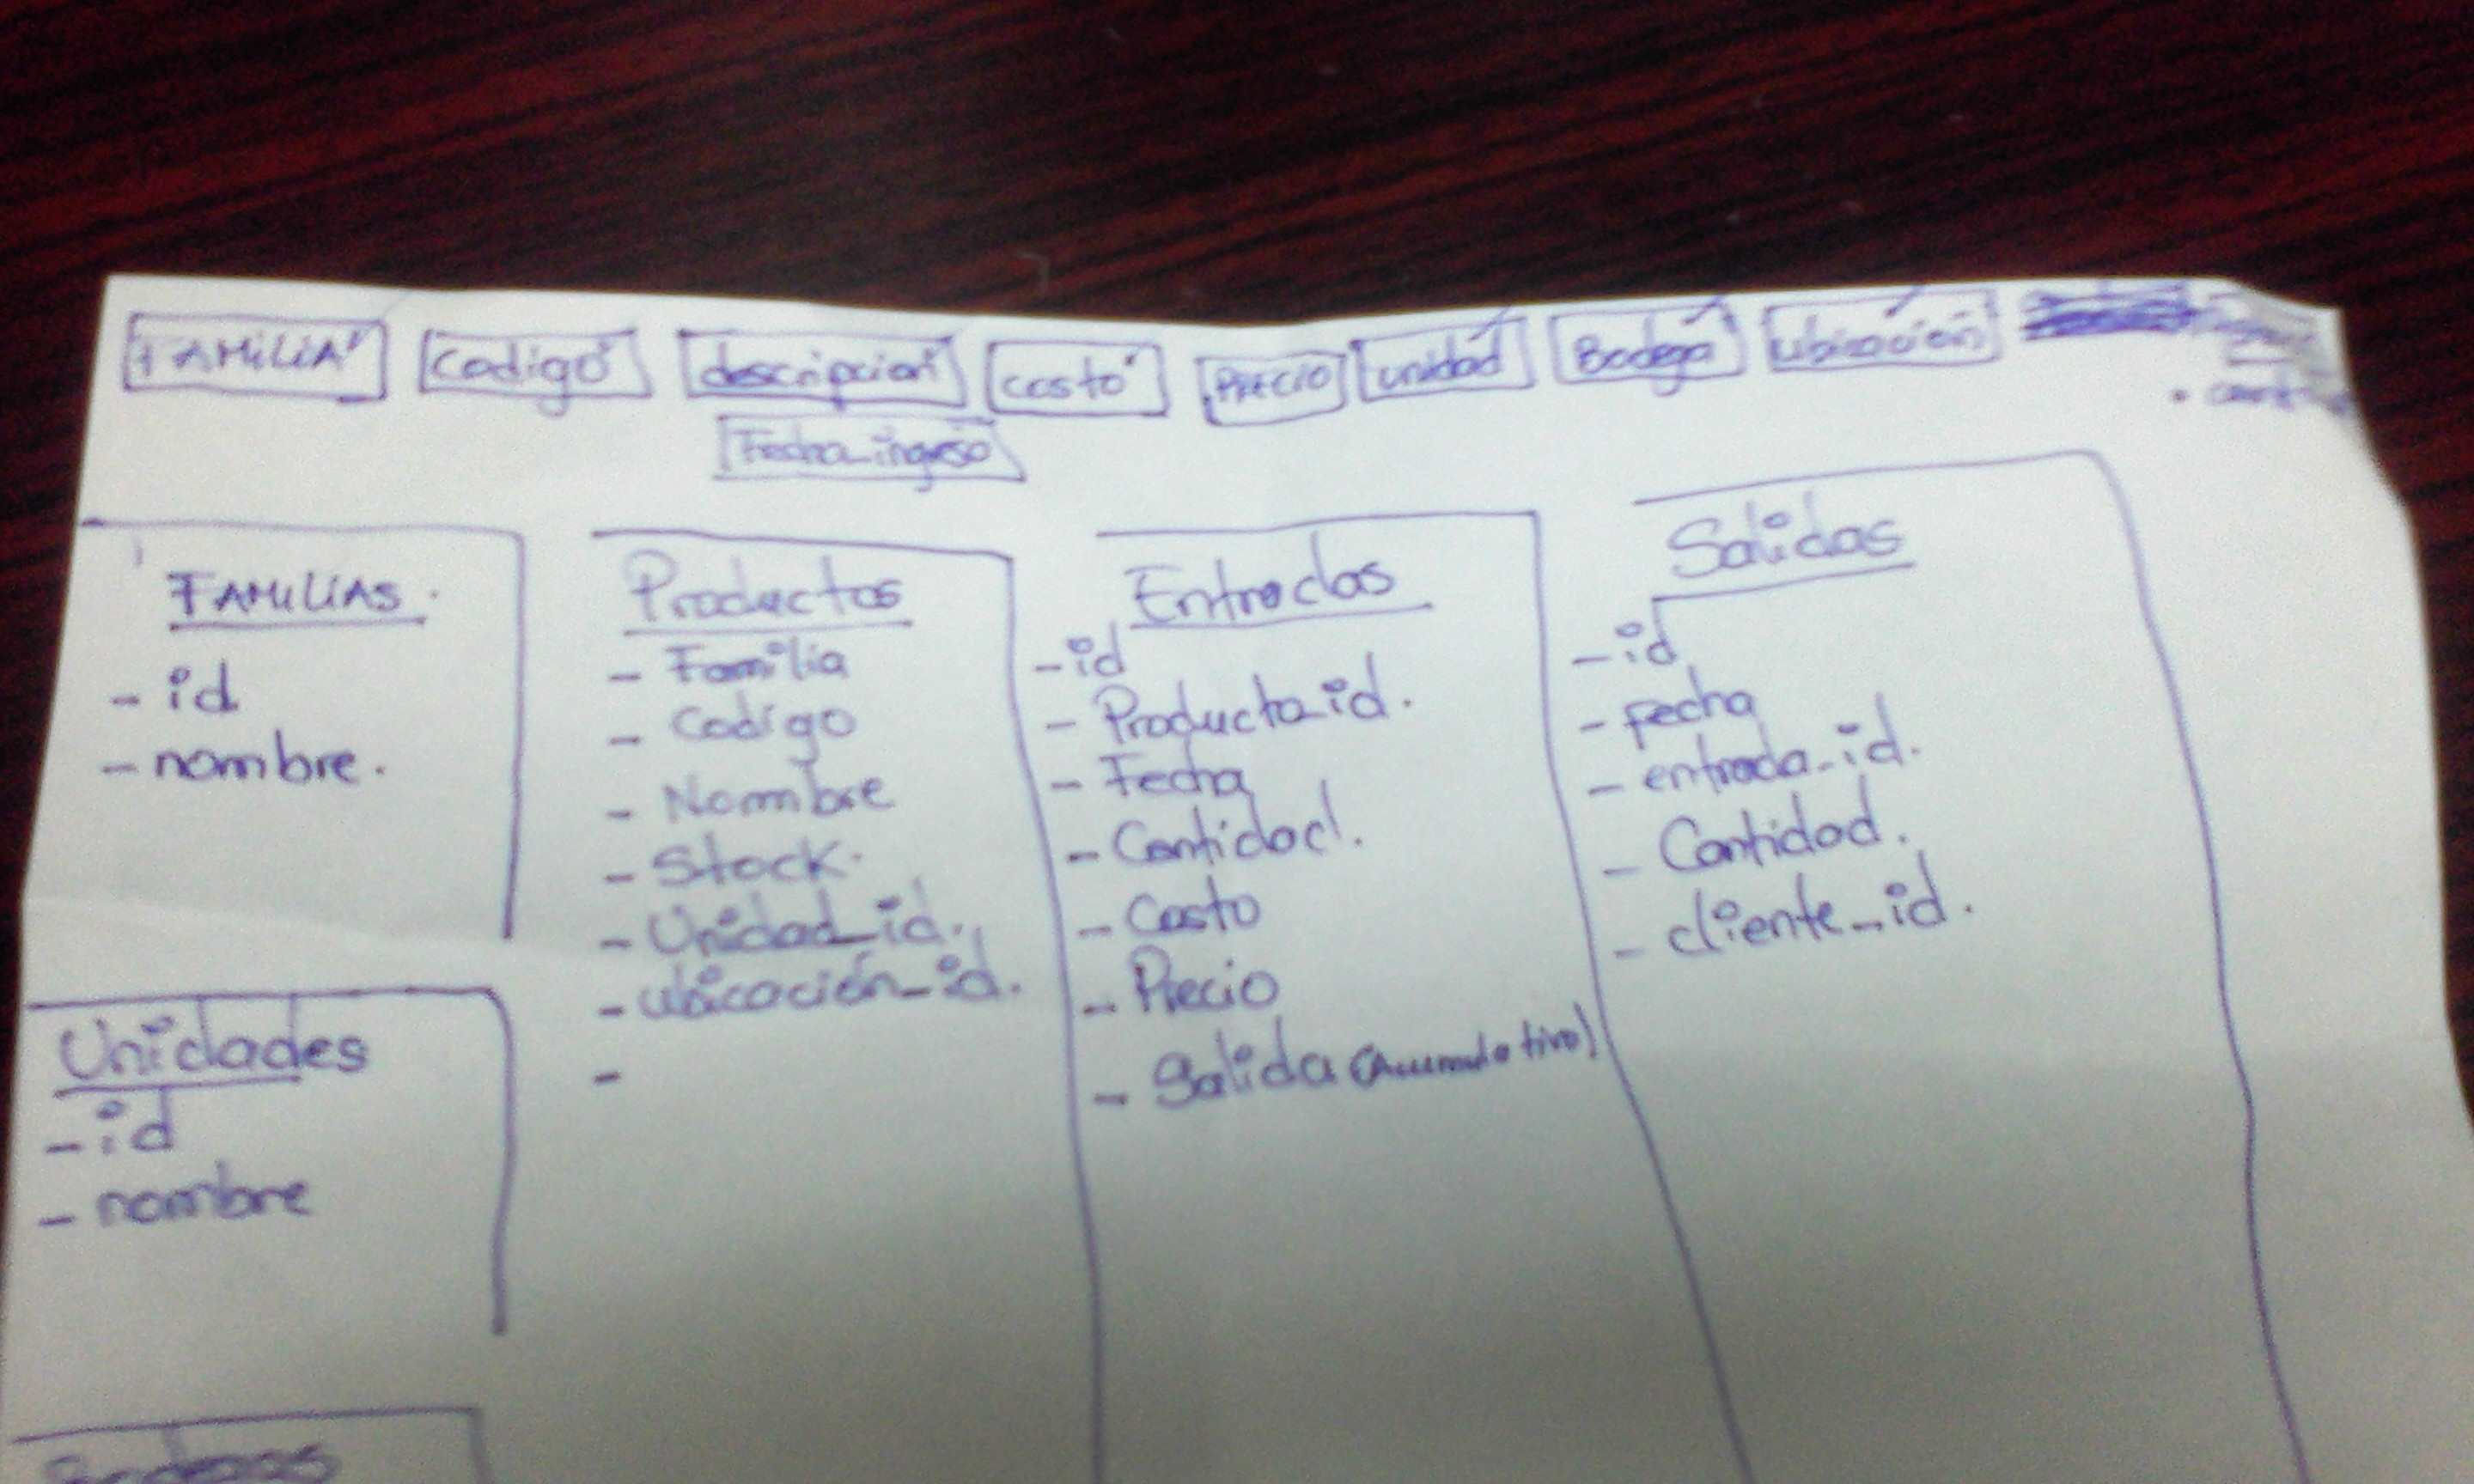 FAMILIA
codigo
descripcion
costo
PRECIO
unidad
Bodega
ubicación
Fecha_ingreso
FAMILIAS.
- id
- nombre.
Unidades
- id
- nombre
Bodegas
Productos
- Familia
- Codigo
- Nombre
- Stock.
- Unidad_id.
- ubicación_id.
-
Entradas
- id
- Producto_id.
- Fecha
- Cantidad.
- Costo
- Precio
- Salida (Acumulativo)
Salidas
- id
- fecha
- entrada_id.
- Cantidad.
- cliente_id.